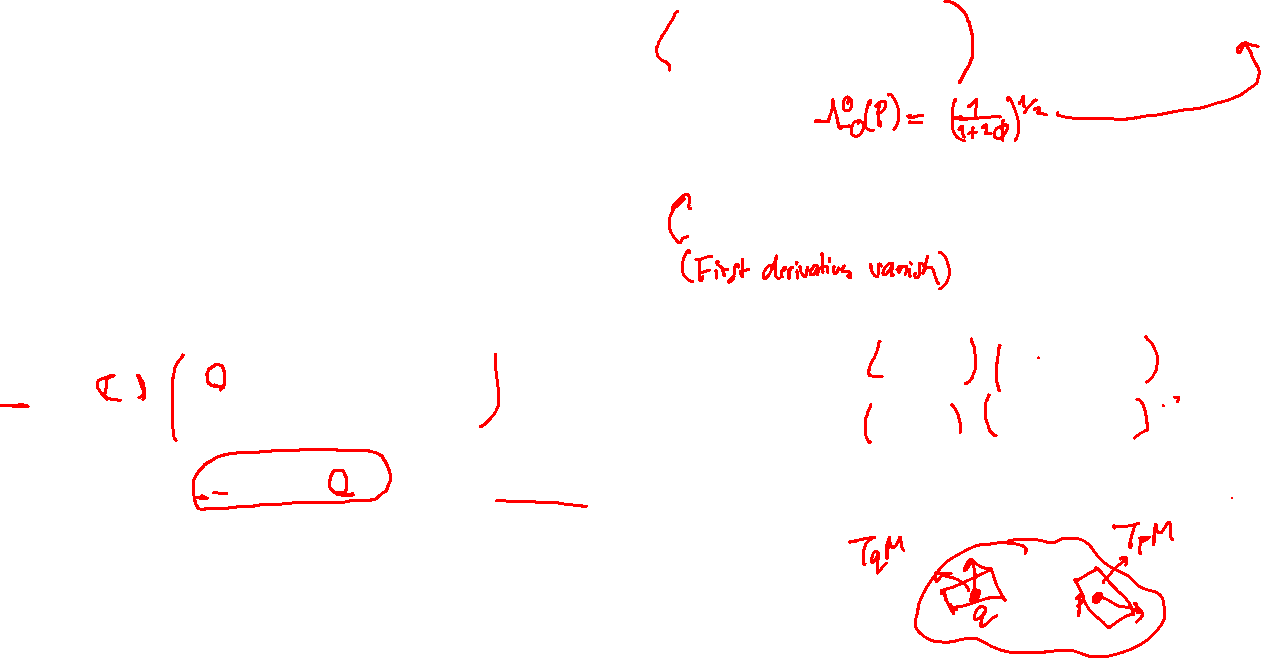 Λ⁰₀(P) = (1/(1+2ϕ))^1/2
(First derivatives vanish)
( ) ( 0 )
0
( ) ( )
( ) ( )
TqM TpM
q